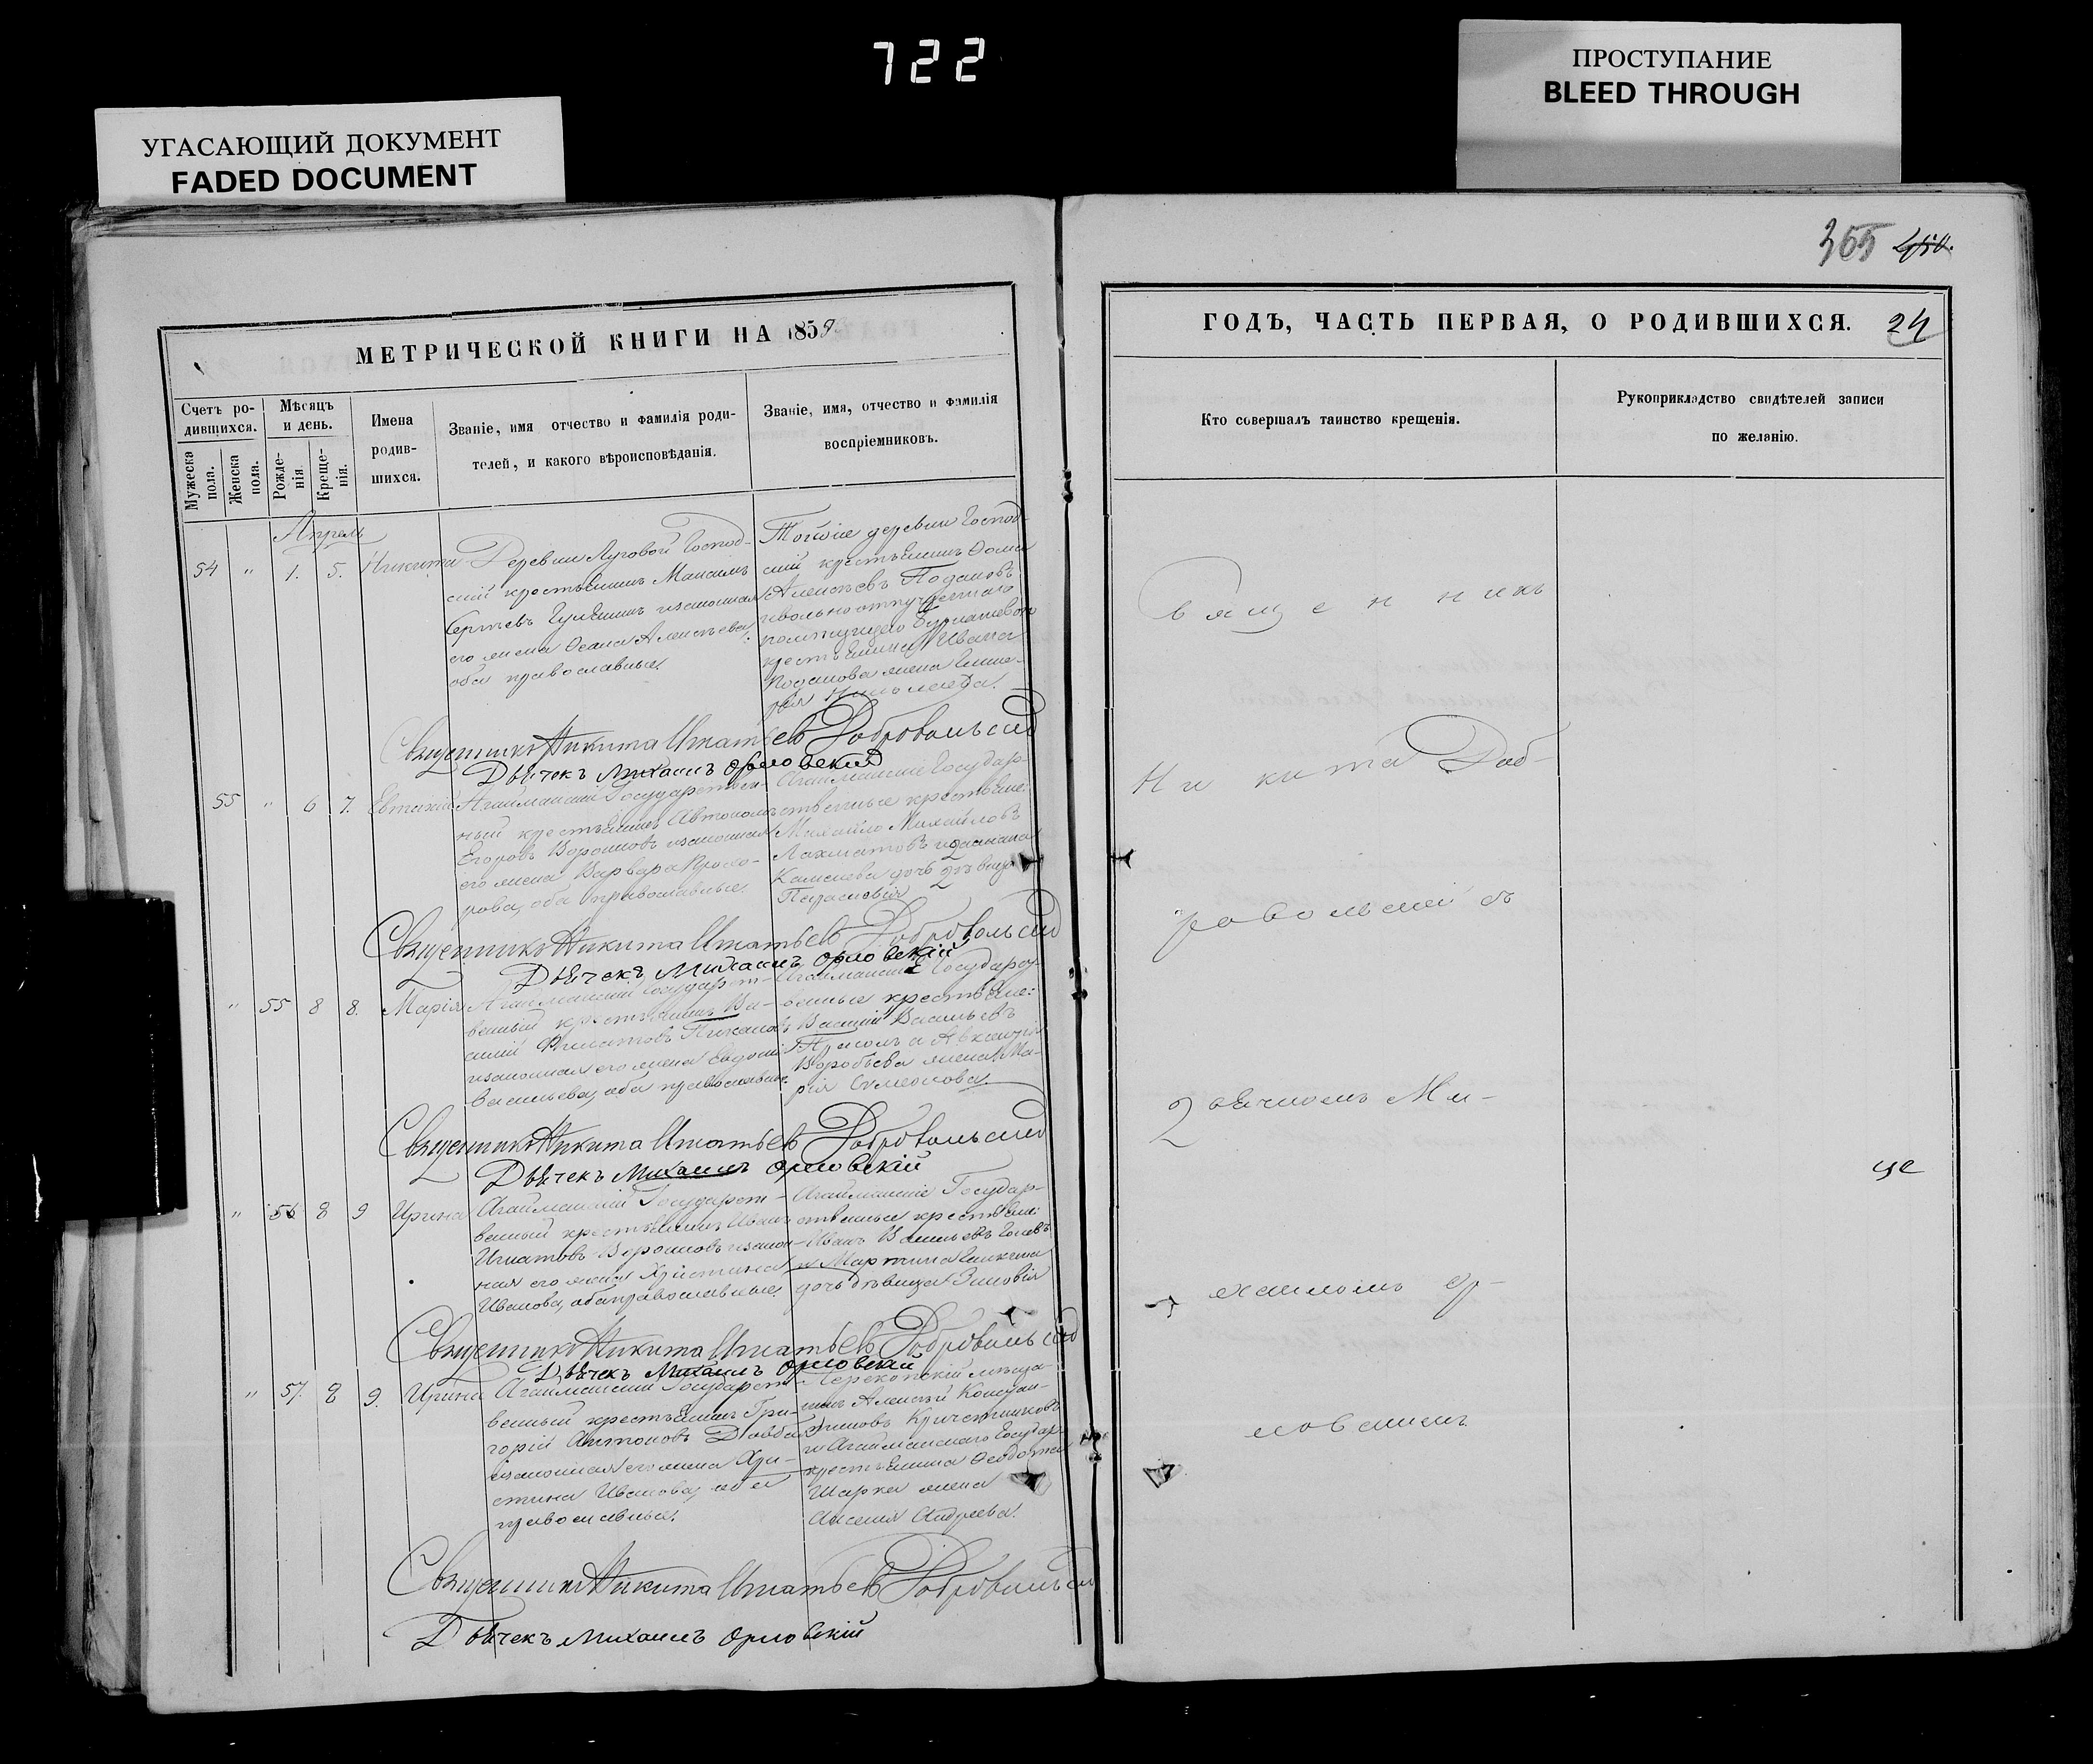 722
УГАСАЮЩИЙ ДОКУМЕНТ
FADED DOCUMENT
ПРОСТУПАНИЕ
BLEED THROUGH
365 450.
МЕТРИЧЕСКОЙ КНИГИ НА 1859
Счетъ ро-
дившихся.
Мужеска
пола.
Женска
пола.
Мѣсяцъ
и день.
Рожде-
нія
Креще-
нія.
Имена
родив-
шихся.
Званіе, имя отчество и фамилія роди-
телей, и какого вѣроисповѣданія.
Званіе, имя, отчество и фамилія
воспріемниковъ.
Апрель
54 " 1. 5. Никита
Деревни Луговой Господ-
скій крестьянинъ Максимъ
Сергѣевъ законная
его жена Алексѣева,
оба православные.
Тойже деревни Господ-
скій крестьянинъ Фома
Алексѣевъ
вольноотпущеннаго
крестьянина Ивана
жена
Николаева.
Священникъ Никита Игнатьевъ Добровольскій
Дьячекъ Михаилъ Орловскій
55 " 6 7. Евтихій
Агайманскій Государствен-
ный крестьянинъ Автономъ
Егоровъ Вороновъ законная
его жена Варвара Прохо-
рова, оба православные.
Агайманскіе Государ-
ственные крестьяне:
Михайло Михайловъ
Лахматовъ
дочь дѣвица
Параскевія
Священникъ Никита Игнатьевъ Добровольскій
Дьячекъ Михаилъ Орловскій
" 55 8 8. Марія
Агайманскій Государст-
венный крестьянинъ Ва-
силій Филатовъ
законная его жена Евдокія
Васильева, оба православные.
Агайманскіе Государст-
венные крестьяне:
Василій Васильевъ
Воробьева жена Ма-
рія Симеонова.
Священникъ Никита Игнатьевъ Добровольскій
Дьячекъ Михаилъ Орловскій
" 56 8 9 Ирина
Агайманскій Государст-
венный крестьянинъ Иванъ
Игнатовъ Вороновъ закон-
ная его жена Христина
Иванова, оба православные.
Агайманскіе Государ-
ственные крестьяне:
Иванъ Васильевъ
и Мартина
дочь дѣвица Зиновія
Священникъ Никита Игнатьевъ Добровольскій
Дьячекъ Михаилъ Орловскій
" 57. 8 9. Ирина
Агайманскій Государст-
венный крестьянинъ Гри-
горій Антоновъ
законная его жена Хри-
стина Иванова, оба
православные.
Перекопскій мѣща-
нинъ Алексѣй Констан-
тиновъ
и Агайманскаго Государ.
крестьянина Феодота
Шарка жена
Андреева.
Священникъ Никита Игнатьевъ Добровольскій
Дьячекъ Михаилъ Орловскій
ГОДЪ, ЧАСТЬ ПЕРВАЯ, О РОДИВШИХСЯ. 24
Кто совершалъ таинство крещенія.
Рукоприкладство свидѣтелей записи
по желанію.
Священникъ
Никита Доб-
ровольскій съ
Дьячкомъ Ми-
ще
хаиломъ Ор-
ловскимъ